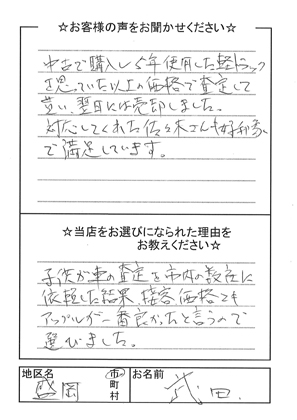 ☆お客様の声をお聞かせください☆
中古で購入し5年使用した軽トラック
を思っていた以上の価格で査定して
貰い翌日には売却しました。
対応してくれた佐々木さんも好印象
で満足しています。
☆当店をお選びになられた理由を
お教えください☆
子供が車の査定を市内の数社に
依頼した結果、接客、価格とも
アップルが一番良かったと言うので
選びました。
地区名
盛岡
市
町
村
お名前
武田